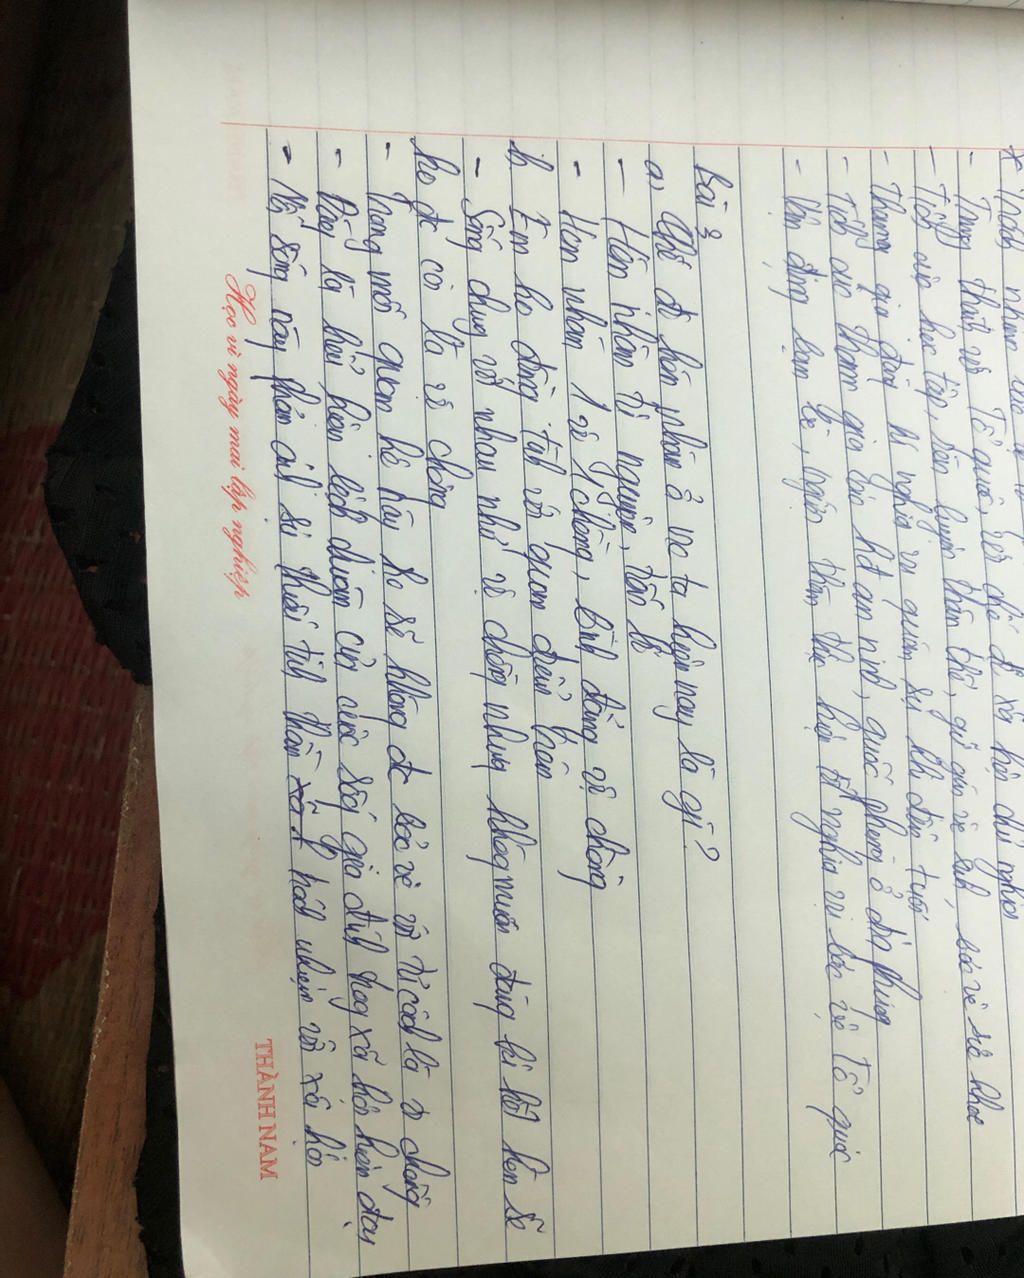 x, Trách nhiệm của
- Trung thành với Tổ quốc, với chế độ xã hội chủ nghĩa
- Tích cực học tập, rèn luyện thân thể, giữ gìn vệ sinh, bảo vệ sức khoẻ
- Tham gia đăng kí nghĩa vụ quân sự khi đến tuổi
- Tích cực tham gia các hđ an ninh, quốc phòng ở địa phương
- Vận động bạn bè, người thân thực hiện tốt nghĩa vụ bảo vệ Tổ quốc
Bài 3
a) Chế độ hôn nhân ở nc ta hiện nay là gì?
- Hôn nhân tự nguyện, tiến bộ
- Hôn nhân 1 vợ 1 chồng, bình đẳng vợ chồng
b, Em ko đồng tình với quan điểm trên
- Sống chung với nhau như vợ chồng nhưng không muốn đăng kí kết hôn sẽ
ko đc coi là vợ chồng
- Trong mối quan hệ này họ sẽ không đc bảo vệ với tư cách là vợ chồng
- Đây là biểu hiện lệch chuẩn của cuộc sống gia đình trong xã hội hiện đại
- Lối sống này phản ánh sự thiếu tinh thần trách nhiệm với xã hội
Học vì ngày mai lập nghiệp
THÀNH NAM